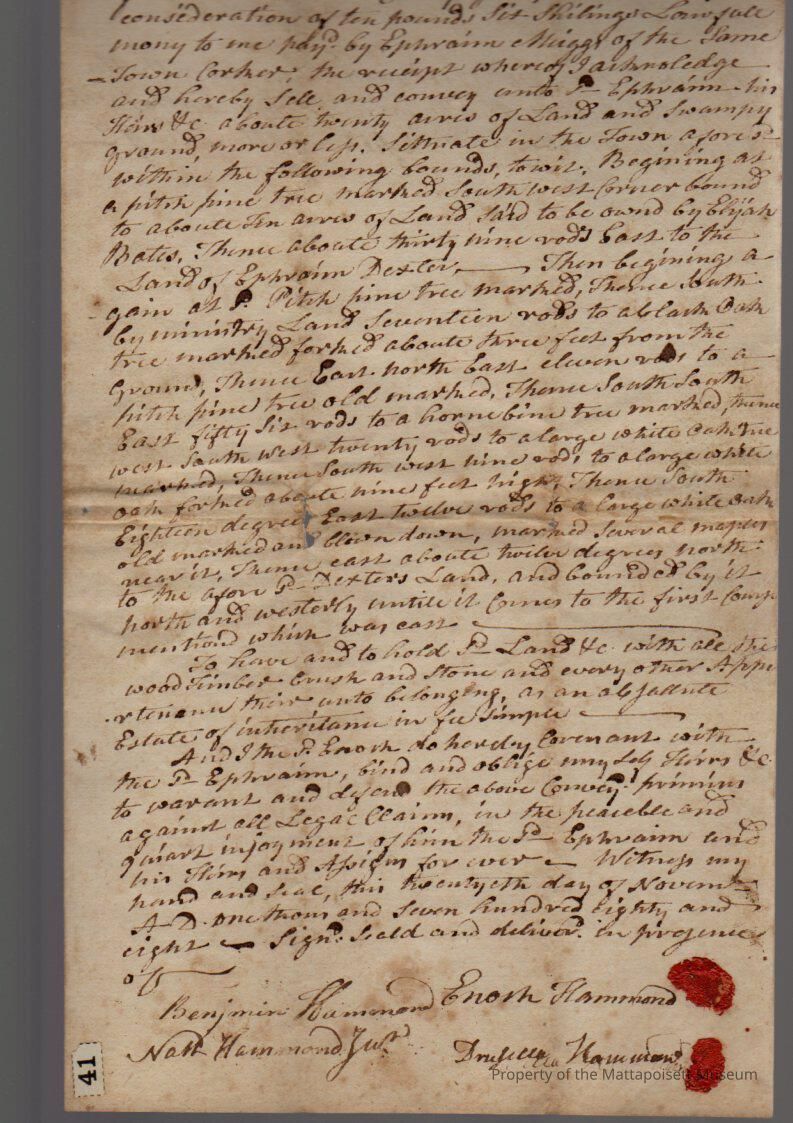 consideration of ten pounds Six Shilings Lawfull
mony to me pay.d by Ephraim Meiggs of the Same
Town Corker, the receipt whereof I acknoledge
and hereby Sell and convey unto sd Ephraim his
Heirs &c. aboute twenty acres of Land and Swampy
ground, more or less. Sittuate in the Town afores.d
within the following bounds, towit, Begining at
a pitch pine tree marked South west Corner bound
to aboute Ten acres of Land Said to be ownd by Elijah
Bates, Thence aboute thirty nine rods East to the
Land of Ephraim Dexter, Then begining a
gain at sd Pitch pine tree marked, Thence South
by ministry Land Seventeen rods to a black Oak
tree marked forked aboute three feet from the
Ground, Thence East north East eleven rods to a
pitch pine tree old marked, Thence South South
East fifty Six rods to a hornebine tree marked, thence
west South west twenty rods to a large white Oak tree
marked, Thence South west nine rods to a large white
oak forked aboute nine feet high, Thence South
Eighteen degrees East twelve rods to a large white Oak
old marked and blown down, marked Several
near it, Thence east aboute twelve degrees north
to the afore sd Dexters Land, and bounded by it
north and westerly untile it Comes to the first
mentiond which was east
To have and to hold sd Land &c. with all the
wood Timber brush and Stone and every other Appu
rtenane their unto belonging, as an absallute
Estate of inheritance in fee Simple
And I the sd Enoch do hereby Covenant with
the sd Ephraim, bind and oblige my Self Heirs &c.
to warant and defend the above Convey.d primises
against all Legal Claims, in the peaceble and
quiart injoyment of him the sd Ephraim and
his Heirs and Assigns for ever Witness my
hand and Seal, this twentyeth day of Novem
A D. one thousand Seven hundred eighty and
eight Sign.d Seald and deliver.d in presence
of
Benjmin Hammond Enoch Hammond
Natt Hammond Junr Drusella Hammond
41
Property of the Mattapoisett Museum